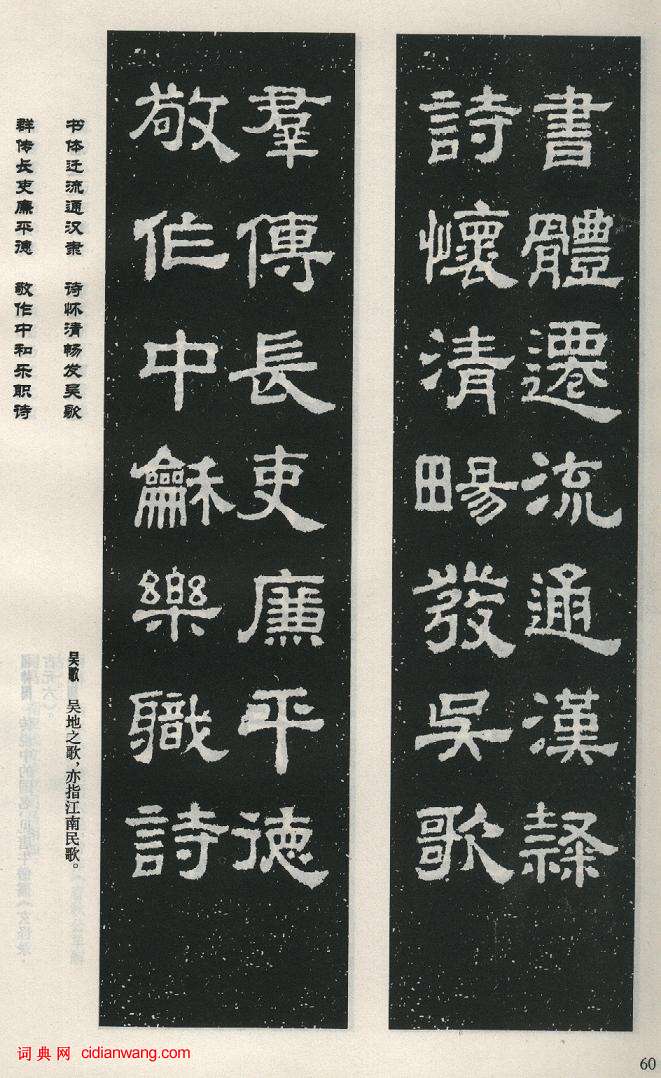 書體遷流通漢隸
詩懷清暢發吳歌
羣傳長吏廉平德
敬作中龢樂職詩
书体迁流通汉隶 诗怀清畅发吴歌
群传长吏廉平德 敬作中和乐职诗
吴歌 吴地之歌，亦指江南民歌。
词典网 cidianwang.com
60